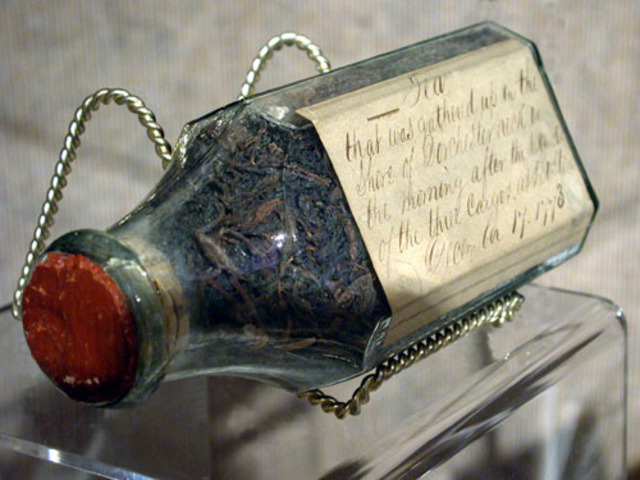 Tea
that was gathered up on the
Shore of Dorchester neck on
the morning after the
of the three Cargos
17. 1773